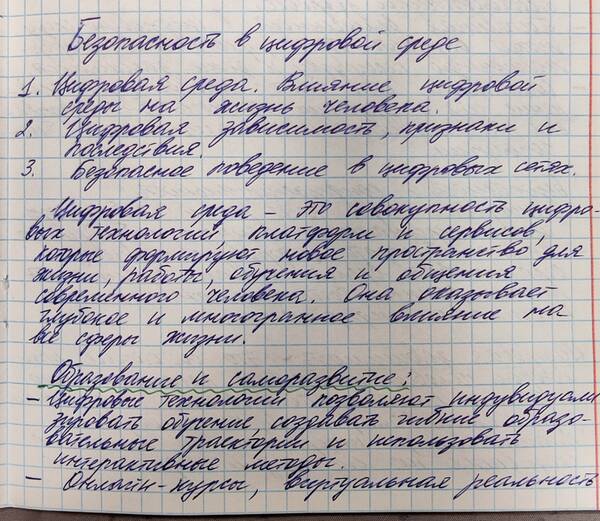 Безопасность в цифровой среде
1. Цифровая среда. Влияние цифровой
среды на жизнь человека.
2. Цифровая зависимость, признаки и
последствия.
3. Безопасное поведение в цифровых сетях.
Цифровая среда – это совокупность цифро-
вых технологий, платформ и сервисов,
которые формируют новое пространство для
жизни, работы, обучения и общения
современного человека. Она оказывает
глубокое и многогранное влияние на
все сферы жизни.
Образование и саморазвитие:
– Цифровые технологии позволяют индивидуали
зировать обучение, создавать гибкие образо-
вательные траектории и использовать
интерактивные методы.
– Онлайн-курсы, виртуальная реальность